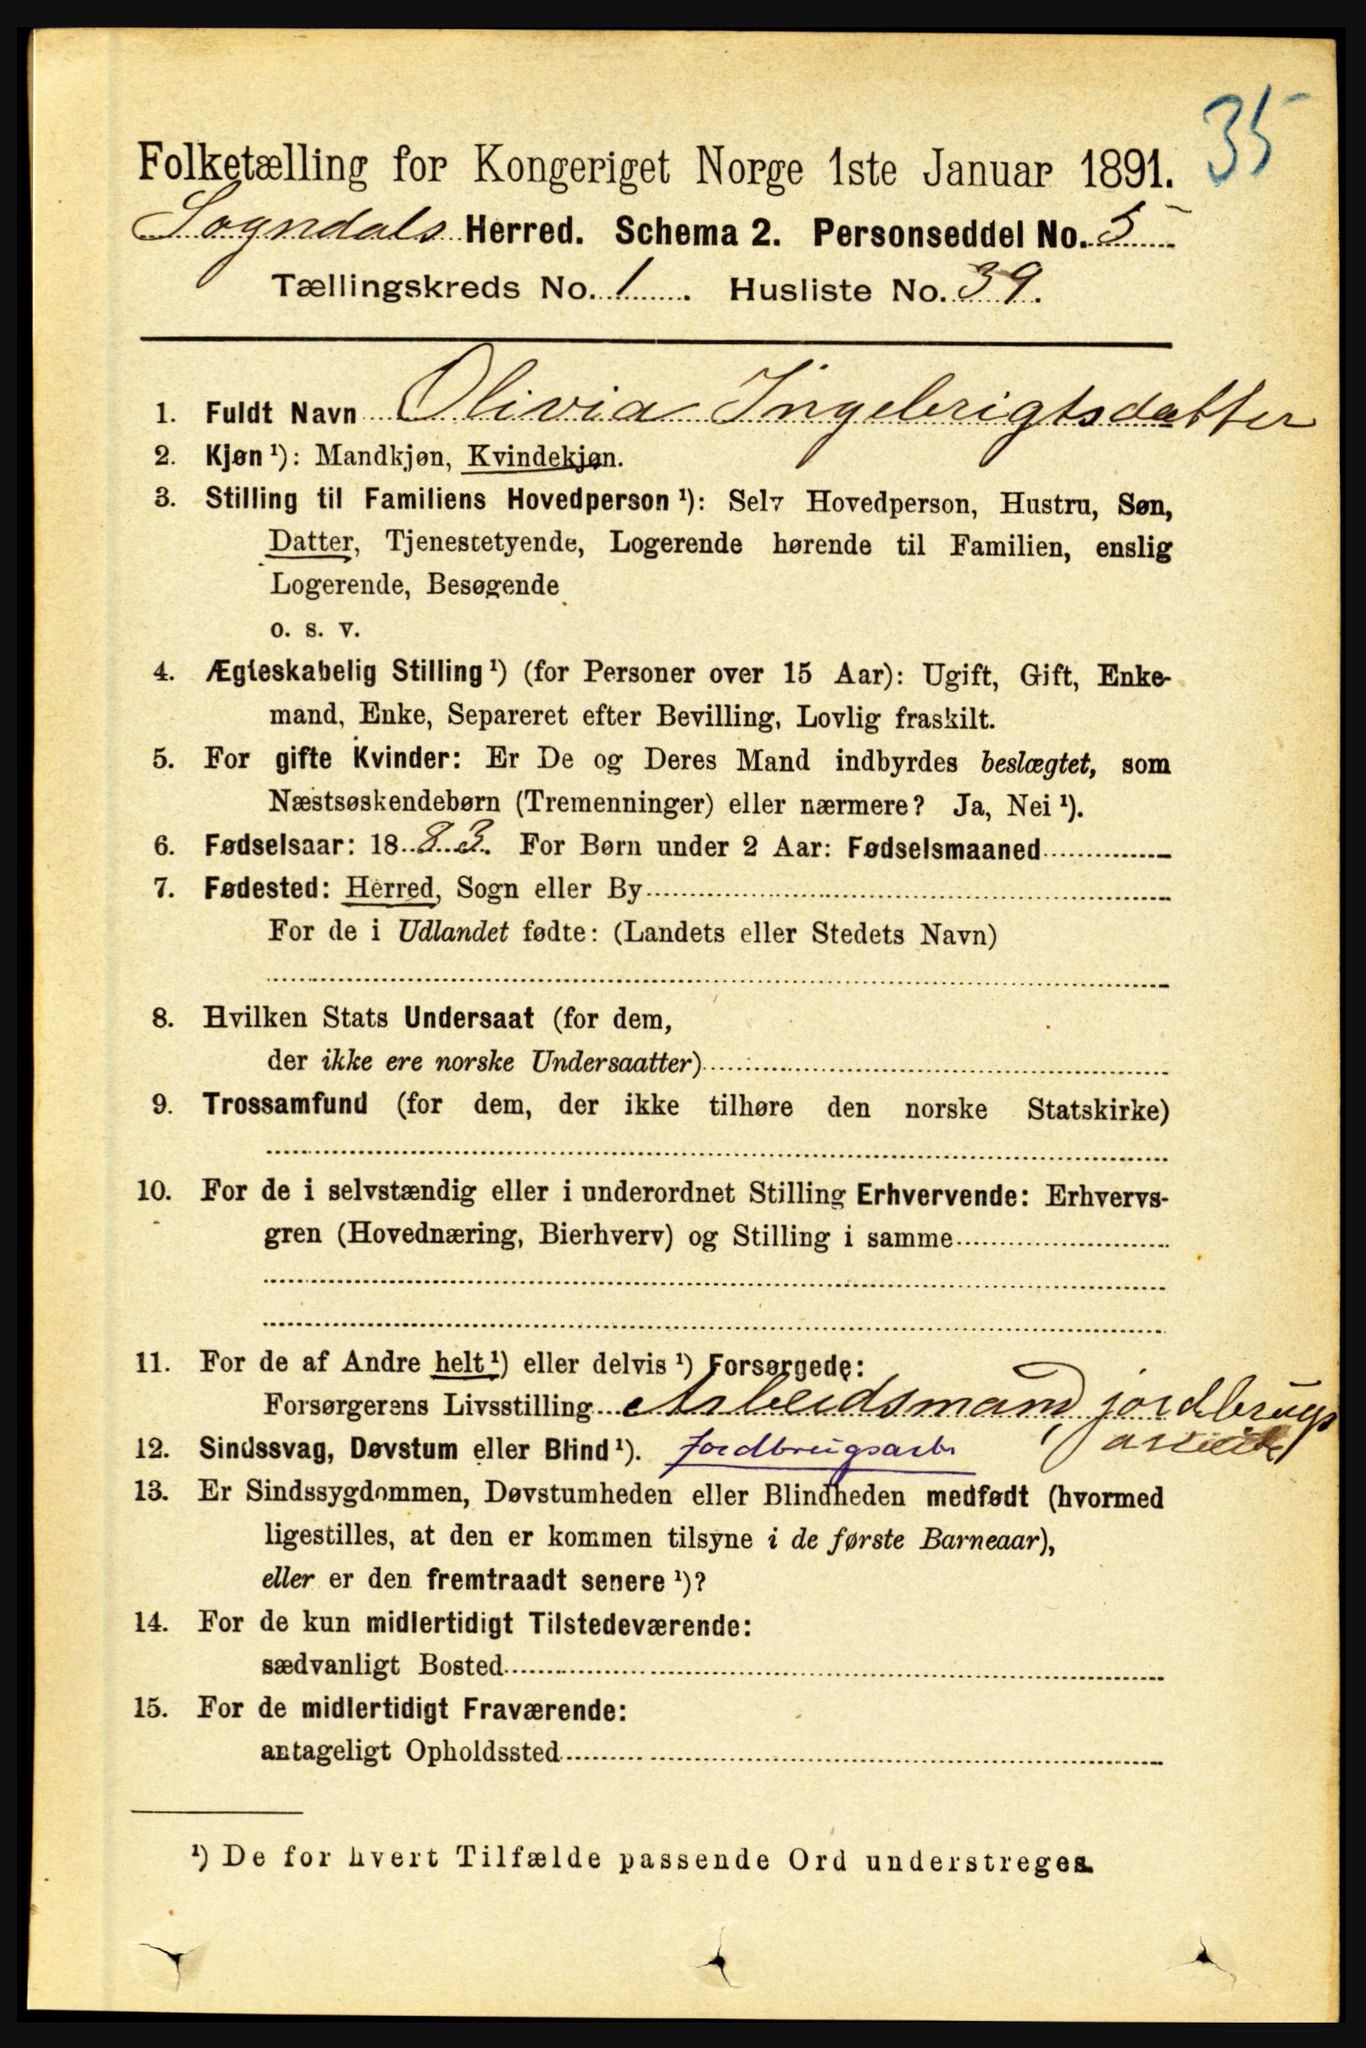 35
Folketælling for Kongeriget Norge 1ste Januar 1891.
Sogndals Herred. Schema 2. Personseddel No. 5
Tællingskreds No. 1. Husliste No. 39.
1. Fuldt Navn Olivia Ingebrigtsdatter
2. Kjøn ¹): Mandkjøn, Kvindekjøn.
3. Stilling til Familiens Hovedperson ¹): Selv Hovedperson, Hustru, Søn,
Datter, Tjenestetyende, Logerende hørende til Familien, enslig
Logerende, Besøgende
o. s. v.
4. Ægteskabelig Stilling ¹) (for Personer over 15 Aar): Ugift, Gift, Enke-
mand, Enke, Separeret efter Bevilling, Lovlig fraskilt.
5. For gifte Kvinder: Er De og Deres Mand indbyrdes beslægtet, som
Næstsøskendebørn (Tremenninger) eller nærmere? Ja, Nei ¹).
6. Fødselsaar: 1883. For Børn under 2 Aar: Fødselsmaaned
7. Fødested: Herred, Sogn eller By
For de i Udlandet fødte: (Landets eller Stedets Navn)
8. Hvilken Stats Undersaat (for dem,
der ikke ere norske Undersaatter)
9. Trossamfund (for dem, der ikke tilhøre den norske Statskirke)
10. For de i selvstændig eller i underordnet Stilling Erhvervende: Erhvervs-
gren (Hovednæring, Bierhverv) og Stilling i samme
11. For de af Andre helt ¹) eller delvis ¹) Forsørgede:
Forsørgerens Livsstilling Arbeidsmand, jordbrugs
arbeide
12. Sindssvag, Døvstum eller Blind ¹). Jordbrugsarb
13. Er Sindssygdommen, Døvstumheden eller Blindheden medfødt (hvormed
ligestilles, at den er kommen tilsyne i de første Barneaar),
eller er den fremtraadt senere ¹)?
14. For de kun midlertidigt Tilstedeværende:
sædvanligt Bosted
15. For de midlertidigt Fraværende:
antageligt Opholdssted
¹) De for hvert Tilfælde passende Ord understreges.